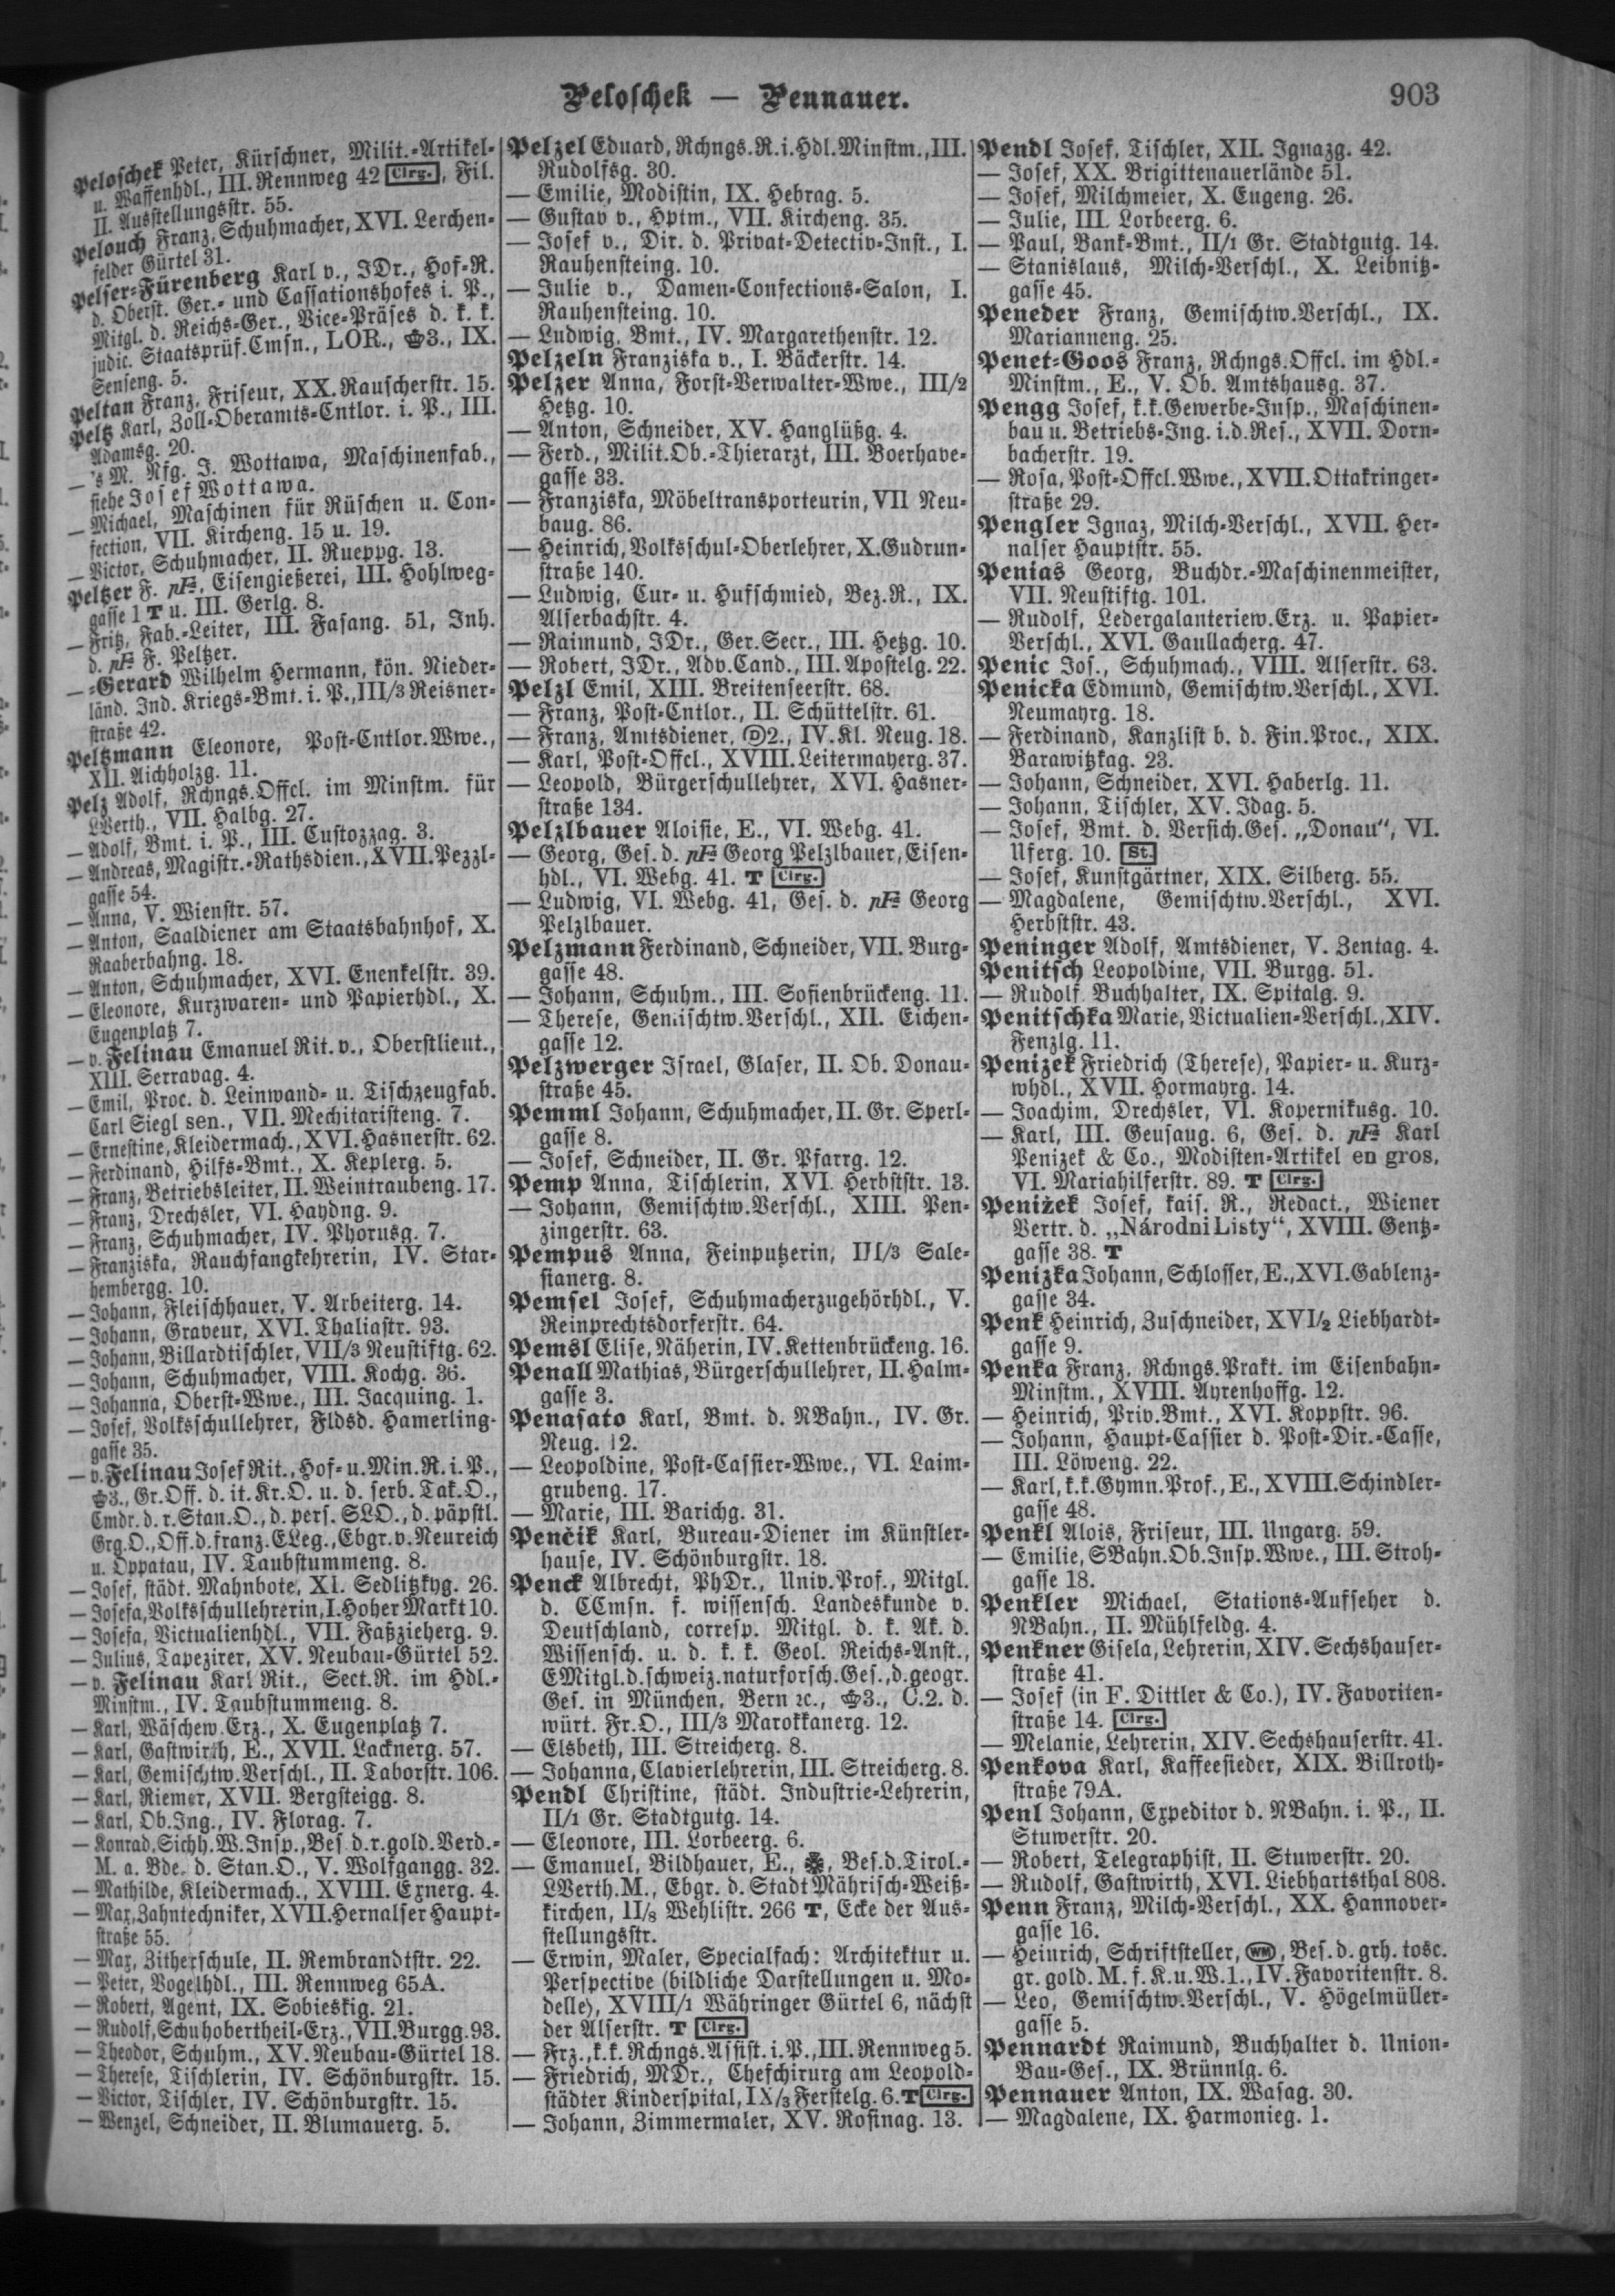 Peloschek — Pennauer.
903
Peloschek Peter, Kürschner, Milit.-Artikel-
u. Waffenhdl., III. Rennweg 42 Clrg., Fil.
II. Ausstellungsstr. 55.
Pelouch Franz, Schuhmacher, XVI. Lerchen-
felder Gürtel 31.
Pelser-Fürenberg Karl v., JDr., Hof-R.
d. Oberst. Ger.- und Cassationshofes i. P.,
Mitgl. d. Reichs-Ger., Vice-Präses d. k. k.
judic. Staatsprüf.Cmsn., LOR., 3., IX.
Senseng. 5.
Peltan Franz, Friseur, XX. Rauscherstr. 15.
Peltz Karl, Zoll-Oberamts-Cntlor. i. P., III.
Adamsg. 20.
— 's M. Nfg. J. Wottawa, Maschinenfab.,
siehe Josef Wottawa.
— Michael, Maschinen für Rüschen u. Con-
fection, VII. Kircheng. 15 u. 19.
— Victor, Schuhmacher, II. Rueppg. 13.
Peltzer F. pFa, Eisengießerei, III. Hohlweg-
gasse 1 T u. III. Gerlg. 8.
— Fritz, Fab.-Leiter, III. Fasang. 51, Inh.
d. pFa F. Peltzer.
— -Gerard Wilhelm Hermann, kön. Nieder-
länd. Ind. Kriegs-Bmt. i. P., III/3 Reisner-
straße 42.
Peltzmann Eleonore, Post-Cntlor.Wwe.,
XII. Aichholzg. 11.
Pelz Adolf, Rchngs.Offcl. im Minstm. für
LVerth., VII. Halbg. 27.
— Adolf, Bmt. i. P., III. Custozzag. 3.
— Andreas, Magistr.-Rathsdien., XVII. Pezzl-
gasse 54.
— Anna, V. Wienstr. 57.
— Anton, Saaldiener am Staatsbahnhof, X.
Raaberbahng. 18.
— Anton, Schuhmacher, XVI. Enenkelstr. 39.
— Eleonore, Kurzwaren- und Papierhdl., X.
Eugenplatz 7.
— v. Felinau Emanuel Rit. v., Oberstlieut.,
XIII. Serravag. 4.
— Emil, Proc. d. Leinwand- u. Tischzeugfab.
Carl Siegl sen., VII. Mechitaristeng. 7.
— Ernestine, Kleidermach., XVI. Hasnerstr. 62.
— Ferdinand, Hilfs-Bmt., X. Keplerg. 5.
— Franz, Betriebsleiter, II. Weintraubeng. 17.
— Franz, Drechsler, VI. Haydng. 9.
— Franz, Schuhmacher, IV. Phorusg. 7.
— Franziska, Rauchfangkehrerin, IV. Star-
hembergg. 10.
— Johann, Fleischhauer, V. Arbeiterg. 14.
— Johann, Graveur, XVI. Thaliastr. 93.
— Johann, Billardtischler, VII/3 Neustiftg. 62.
— Johann, Schuhmacher, VIII. Kochg. 36.
— Johanna, Oberst-Wwe., III. Jacquing. 1.
— Josef, Volksschullehrer, Fldsd. Hamerling-
gasse 35.
— v. Felinau Josef Rit., Hof- u. Min. R. i. P.,
3., Gr.Off. d. it. Kr.O. u. d. serb. Tak.O.,
Cmdr. d. r. Stan.O., d. pers. SLO., d. päpstl.
Grg.O., Off. d. franz. ELeg., Ebgr. v. Neureich
u. Oppatau, IV. Taubstummeng. 8.
— Josef, städt. Mahnbote, XI. Sedlitzkyg. 26.
— Josefa, Volksschullehrerin, I. Hoher Markt 10.
— Josefa, Victualienhdl., VII. Faßzieherg. 9.
— Julius, Tapezirer, XV. Neubau-Gürtel 52.
— v. Felinau Karl Rit., Sect.R. im Hdl.-
Minstm., IV. Taubstummeng. 8.
— Karl, Wäschew.Erz., X. Eugenplatz 7.
— Karl, Gastwirth, E., XVII. Lacknerg. 57.
— Karl, Gemischtw.Verschl., II. Taborstr. 106.
— Karl, Riemer, XVII. Bergsteigg. 8.
— Karl, Ob.Ing., IV. Florag. 7.
— Konrad, Sichh.W.Insp., Bes. d. r. gold. Verd.-
M. a. Bde. d. Stan.O., V. Wolfgangg. 32.
— Mathilde, Kleidermach., XVIII. Exnerg. 4.
— Max, Zahntechniker, XVII. Hernalser Haupt-
straße 55.
— Max, Zitherschule, II. Rembrandtstr. 22.
— Peter, Vogelhdl., III. Rennweg 65A.
— Robert, Agent, IX. Sobieskig. 21.
— Rudolf, Schuhobertheil-Erz., VII. Burgg. 93.
— Theodor, Schuhm., XV. Neubau-Gürtel 18.
— Therese, Tischlerin, IV. Schönburgstr. 15.
— Victor, Tischler, IV. Schönburgstr. 15.
— Wenzel, Schneider, II. Blumauerg. 5.
Pelzel Eduard, Rchngs.R. i. Hdl.Minstm., III.
Rudolfsg. 30.
— Emilie, Modistin, IX. Hebrag. 5.
— Gustav v., Hptm., VII. Kircheng. 35.
— Josef v., Dir. d. Privat-Detectiv-Inst., I.
Rauhensteing. 10.
— Julie v., Damen-Confections-Salon, I.
Rauhensteing. 10.
— Ludwig, Bmt., IV. Margarethenstr. 12.
Pelzeln Franziska v., I. Bäckerstr. 14.
Pelzer Anna, Forst-Verwalter-Wwe., III/2
Hetzg. 10.
— Anton, Schneider, XV. Hanglüßg. 4.
— Ferd., Milit.Ob.-Thierarzt, III. Boerhave-
gasse 33.
— Franziska, Möbeltransporteurin, VII Neu-
baug. 86.
— Heinrich, Volksschul-Oberlehrer, X. Gudrun-
straße 140.
— Ludwig, Cur- u. Hufschmied, Bez.R., IX.
Alserbachstr. 4.
— Raimund, JDr., Ger.Secr., III. Hetzg. 10.
— Robert, JDr., Adv.Cand., III. Apostelg. 22.
Pelzl Emil, XIII. Breitenseerstr. 68.
— Franz, Post-Cntlor., II. Schüttelstr. 61.
— Franz, Amtsdiener, D2., IV. Kl. Neug. 18.
— Karl, Post-Offcl., XVIII. Leitermayerg. 37.
— Leopold, Bürgerschullehrer, XVI. Hasner-
straße 134.
Pelzlbauer Aloisie, E., VI. Webg. 41.
— Georg, Ges. d. pFa Georg Pelzlbauer, Eisen-
hdl., VI. Webg. 41. T Clrg.
— Ludwig, VI. Webg. 41, Ges. d. pFa Georg
Pelzlbauer.
Pelzmann Ferdinand, Schneider, VII. Burg-
gasse 48.
— Johann, Schuhm., III. Sofienbrückeng. 11.
— Therese, Gemischtw.Verschl., XII. Eichen-
gasse 12.
Pelzwerger Israel, Glaser, II. Ob. Donau-
straße 45.
Pemml Johann, Schuhmacher, II. Gr. Sperl-
gasse 8.
— Josef, Schneider, II. Gr. Pfarrg. 12.
Pemp Anna, Tischlerin, XVI. Herbststr. 13.
— Johann, Gemischtw.Verschl., XIII. Pen-
zingerstr. 63.
Pempus Anna, Feinputzerin, III/3 Sale-
sianerg. 8.
Pemsel Josef, Schuhmacherzugehörhdl., V.
Reinprechtsdorferstr. 64.
Pemsl Elise, Näherin, IV. Kettenbrückeng. 16.
Penall Mathias, Bürgerschullehrer, II. Halm-
gasse 3.
Penasato Karl, Bmt. d. NBahn., IV. Gr.
Neug. 12.
— Leopoldine, Post-Cassier-Wwe., VI. Laim-
grubeng. 17.
— Marie, III. Barichg. 31.
Penčik Karl, Bureau-Diener im Künstler-
hause, IV. Schönburgstr. 18.
Penck Albrecht, PhDr., Univ.Prof., Mitgl.
d. CCmsn. f. wissensch. Landeskunde v.
Deutschland, corresp. Mitgl. d. k. Ak. d.
Wissensch. u. d. k. k. Geol. Reichs-Anst.,
EMitgl. d. schweiz. naturforsch. Ges., d. geogr.
Ges. in München, Bern ꝛc., 3., C.2. d.
würt. Fr.O., III/3 Marokkanerg. 12.
— Elsbeth, III. Streicherg. 8.
— Johanna, Clavierlehrerin, III. Streicherg. 8.
Pendl Christine, städt. Industrie-Lehrerin,
II/1 Gr. Stadtgutg. 14.
— Eleonore, III. Lorbeerg. 6.
— Emanuel, Bildhauer, E., Bes. d. Tirol.-
LVerth.M., Ebgr. d. Stadt Mährisch-Weiß-
kirchen, II/8 Wehlistr. 266 T, Ecke der Aus-
stellungsstr.
— Erwin, Maler, Specialfach: Architektur u.
Perspective (bildliche Darstellungen u. Mo-
delle), XVIII/1 Währinger Gürtel 6, nächst
der Alserstr. T Clrg.
— Frz., k. k. Rchngs.Assist. i. P., III. Rennweg 5.
— Friedrich, MDr., Chefchirurg am Leopold-
städter Kinderspital, IX/3 Ferstelg. 6. T Clrg.
— Johann, Zimmermaler, XV. Rosinag. 13.
Pendl Josef, Tischler, XII. Ignazg. 42.
— Josef, XX. Brigittenauerlände 51.
— Josef, Milchmeier, X. Eugeng. 26.
— Julie, III. Lorbeerg. 6.
— Paul, Bank-Bmt., II/1 Gr. Stadtgutg. 14.
— Stanislaus, Milch-Verschl., X. Leibnitz-
gasse 45.
Peneder Franz, Gemischtw.Verschl., IX.
Marianneng. 25.
Penet-Goos Franz, Rchngs.Offcl. im Hdl.-
Minstm., E., V. Ob. Amtshausg. 37.
Pengg Josef, k. k. Gewerbe-Insp., Maschinen-
bau u. Betriebs-Ing. i. d. Res., XVII. Dorn-
bacherstr. 19.
— Rosa, Post-Offcl.Wwe., XVII. Ottakringer-
straße 29.
Pengler Ignaz, Milch-Verschl., XVII. Her-
nalser Hauptstr. 55.
Penias Georg, Buchdr.-Maschinenmeister,
VII. Neustiftg. 101.
— Rudolf, Ledergalanteriew.Erz. u. Papier-
Verschl., XVI. Gaullacherg. 47.
Penic Jos., Schuhmach., VIII. Alserstr. 63.
Penicka Edmund, Gemischtw.Verschl., XVI.
Neumayrg. 18.
— Ferdinand, Kanzlist b. d. Fin.Proc., XIX.
Barawitzkag. 23.
— Johann, Schneider, XVI. Haberlg. 11.
— Johann, Tischler, XV. Idag. 5.
— Josef, Bmt. d. Versich.Ges. „Donau“, VI.
Uferg. 10. St.
— Josef, Kunstgärtner, XIX. Silberg. 55.
— Magdalene, Gemischtw.Verschl., XVI.
Herbststr. 43.
Peninger Adolf, Amtsdiener, V. Zentag. 4.
Penitsch Leopoldine, VII. Burgg. 51.
— Rudolf Buchhalter, IX. Spitalg. 9.
Penitschka Marie, Victualien-Verschl., XIV.
Fenzlg. 11.
Penizek Friedrich (Therese), Papier- u. Kurz-
whdl., XVII. Hormayrg. 14.
— Joachim, Drechsler, VI. Kopernikusg. 10.
— Karl, III. Geusaug. 6, Ges. d. pFa Karl
Penizek & Co., Modisten-Artikel en gros,
VI. Mariahilferstr. 89. T Clrg.
Penižek Josef, kais. R., Redact., Wiener
Vertr. d. „Národni Listy“, XVIII. Gentz-
gasse 38. T
Penizka Johann, Schlosser, E., XVI. Gablenz-
gasse 34.
Penk Heinrich, Zuschneider, XVI/2 Liebhardt-
gasse 9.
Penka Franz, Rchngs.Prakt. im Eisenbahn-
Minstm., XVIII. Ayrenhoffg. 12.
— Heinrich, Priv.Bmt., XVI. Koppstr. 96.
— Johann, Haupt-Cassier d. Post-Dir.-Casse,
III. Löweng. 22.
— Karl, k. k. Gymn.Prof., E., XVIII. Schindler-
gasse 48.
Penkl Alois, Friseur, III. Ungarg. 59.
— Emilie, SBahn.Ob.Insp.Wwe., III. Stroh-
gasse 18.
Penkler Michael, Stations-Aufseher d.
NBahn., II. Mühlfeldg. 4.
Penkner Gisela, Lehrerin, XIV. Sechshauser-
straße 41.
— Josef (in F. Dittler & Co.), IV. Favoriten-
straße 14. Clrg.
— Melanie, Lehrerin, XIV. Sechshauserstr. 41.
Penkova Karl, Kaffeesieder, XIX. Billroth-
straße 79A.
Penl Johann, Expeditor d. NBahn. i. P., II.
Stuwerstr. 20.
— Robert, Telegraphist, II. Stuwerstr. 20.
— Rudolf, Gastwirth, XVI. Liebhartsthal 808.
Penn Franz, Milch-Verschl., XX. Hannover-
gasse 16.
— Heinrich, Schriftsteller, WM, Bes. d. grh. tosc.
gr. gold. M. f. K. u. W. 1., IV. Favoritenstr. 8.
— Leo, Gemischtw.Verschl., V. Högelmüller-
gasse 5.
Pennardt Raimund, Buchhalter d. Union-
Bau-Ges., IX. Brünnlg. 6.
Pennauer Anton, IX. Wasag. 30.
— Magdalene, IX. Harmonieg. 1.